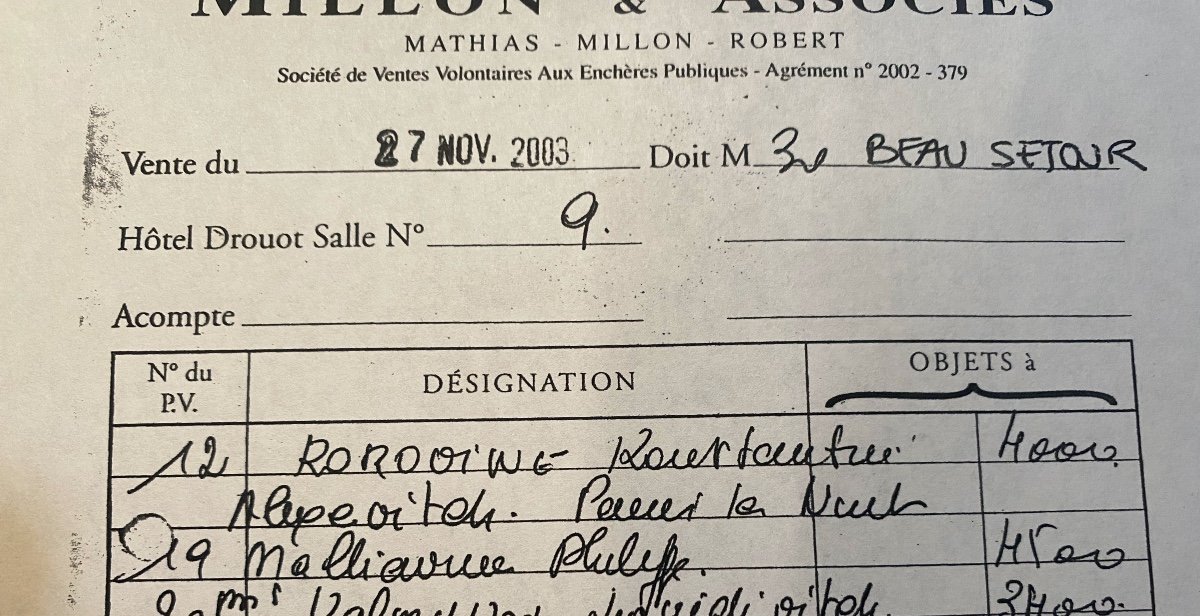 MILLON & ASSOCIÉS
MATHIAS - MILLON - ROBERT
Société de Ventes Volontaires Aux Enchères Publiques - Agrément n° 2002 - 379
Vente du 27 NOV. 2003 Doit M BEAU SEJOUR
Hôtel Drouot Salle N° 9.
Acompte
N° du P.V. DÉSIGNATION OBJETS à
12 KOROVINE Konstantin 4000
Paris la Nuit
19 Malliavine Philippe. 4500